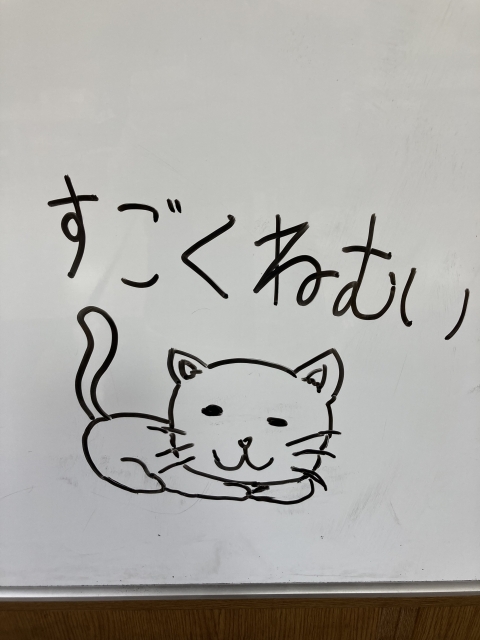 すごくねむい